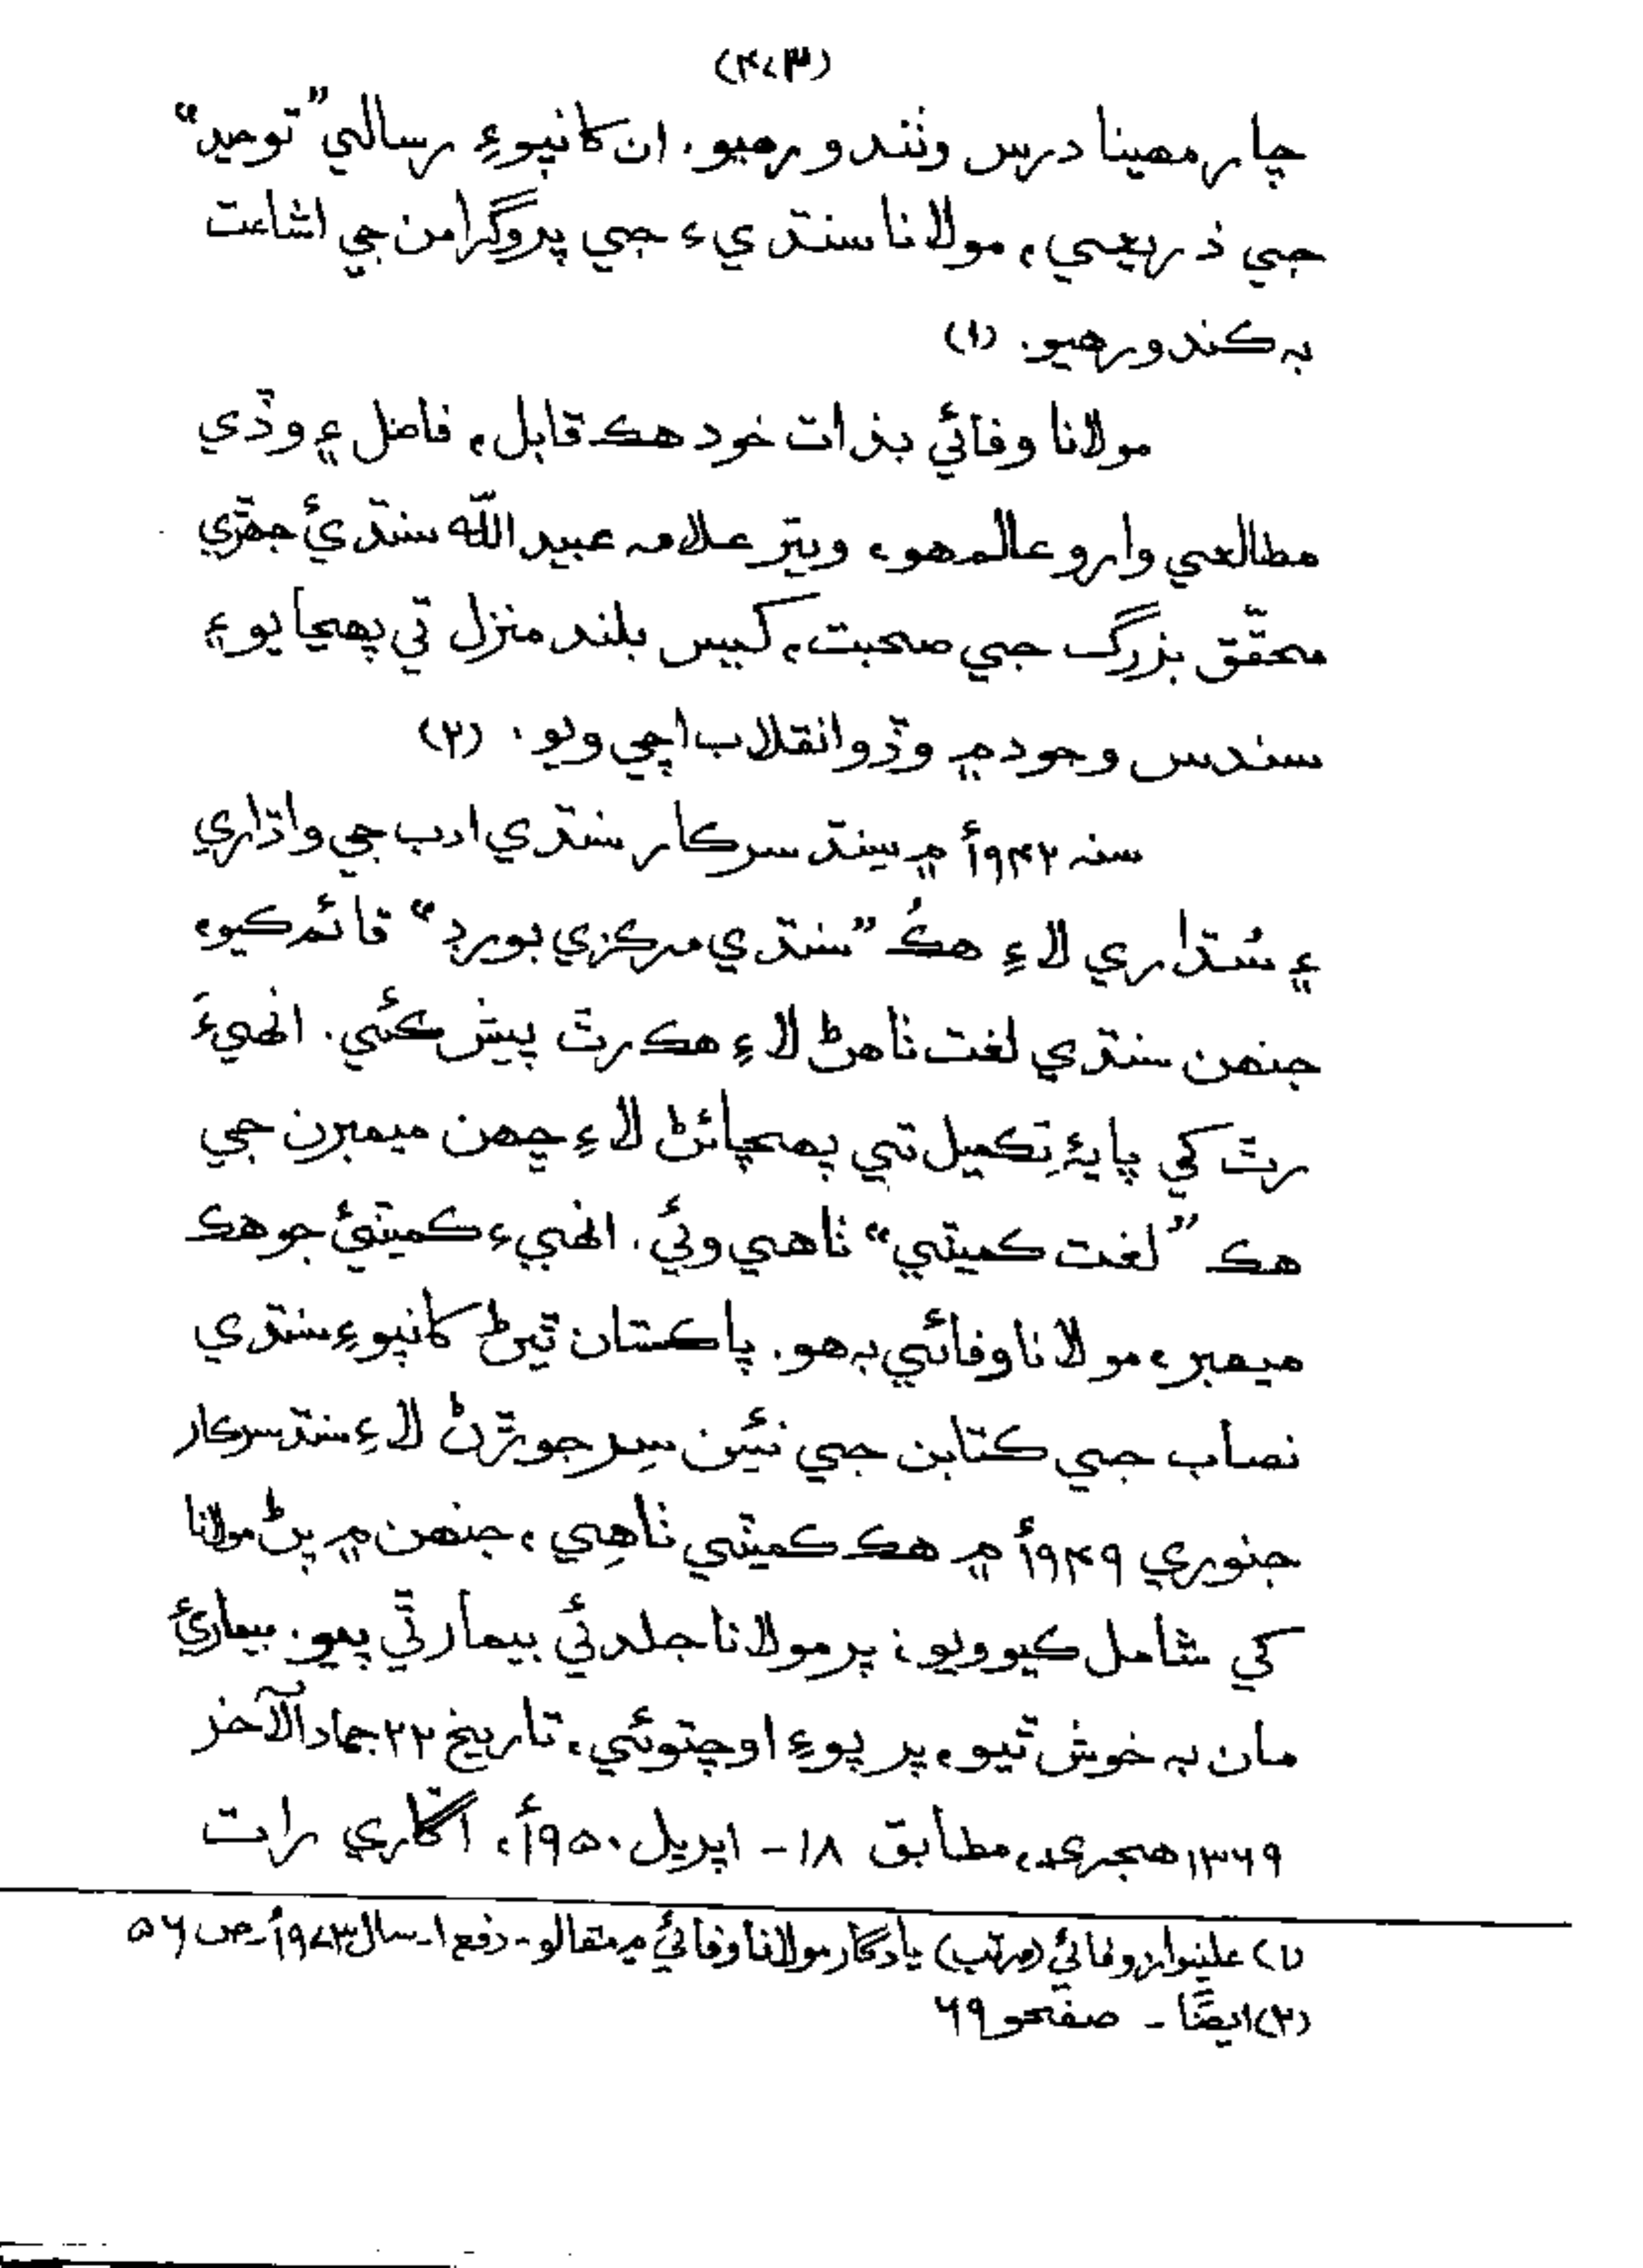 (۴۷۳)
چار مهينا درس وٺندو رهيو. ان کانپوءِ رسالي ”توحيد“
جي ذريعي، مولانا سنڌيء جي پروگرامن جي اشاعت
به ڪندو رهيو. (۱)
مولانا وفائي بذات خود هڪ قابل، فاضل ۽ وڏي
مطالعي وارو عالم هو، ويتر علامه عبيدالله سنڌيءَ جھڙي
محقّق بزرگ جي صحبت، کيس بلند منزل تي پهچايو ۽
سندس وجود ۾ وڏو انقلاب اچي ويو. (۲)
سنه ۱۹۴۲ع ۾ سِنڌ سرڪار سنڌي ادب جي واڌاري
۽ سُڌاري لاءِ هڪُ ”سنڌي مرڪزي بورڊ“ قائم ڪيو،
جنهن سنڌي لغت ٺاهڻ لاءِ هڪ رٿ پيش ڪئي. انهيءَ
رٿ کي پايۂِ تڪميل تي پهچائڻ لاءِ ڇهن ميمبرن جي
هڪ ”لغت ڪميٽي“ ٺاهي وئي. انهيء ڪميٽيءَ جو هڪ
ميمبر، مولانا وفائي به هو. پاڪستان ٿيڻ کانپوءِ سنڌي
نصاب جي ڪتابن جي نئين سِر جوڙڻ لاءِ سنڌ سرڪار
جنوري ۱۹۴۹ع ۾ هڪ ڪميٽي ٺاهِي، جنهن ۾ پڻ مولانا
کي شامل ڪيو ويو؛ پر مولانا جلد ئي بيمار ٿي پيو. بيماريءَ
مان به خوش ٿيو، پر پوءِ اوچتوئي، تاريخ ۲۲ جماد الآخر
۱۳۶۹ هجري، مطابق ۱۸- اپريل ۱۹۵۰ع، اڱاري رات
(۱) علينواز وفائي (مرتب) يادگار مولانا وفائي ۾ مقالو- دفع ۱- سال ۱۹۷۳ع- ص ۵۶
(۲) ايضًا - صفحو ۶۹